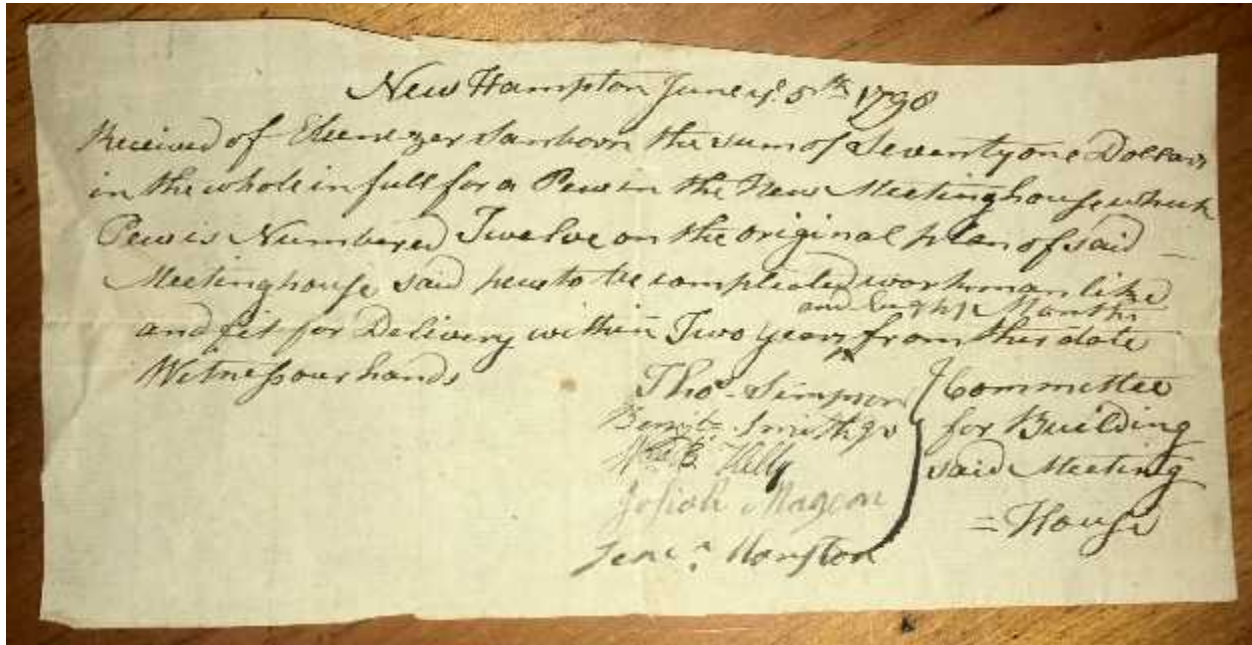 New Hampton June ye 5th 1798
Received of Ebenezer Sanborn the sum of Seventyone Dollars
in the whole in full for a Pew in the New Meetinghouse which
Pew is Numbered Twelve on the original plan of said
Meetinghouse said pew to be compleated workmanlike
and Eight Months
and fit for Delivery within Two years from this date
Witness our hands
Thos. Simpson
Benjn Smith Jr
Wm B. Kelly
Josiah Magoon
Jera. Marston
Committee
for Building
said Meeting
=House